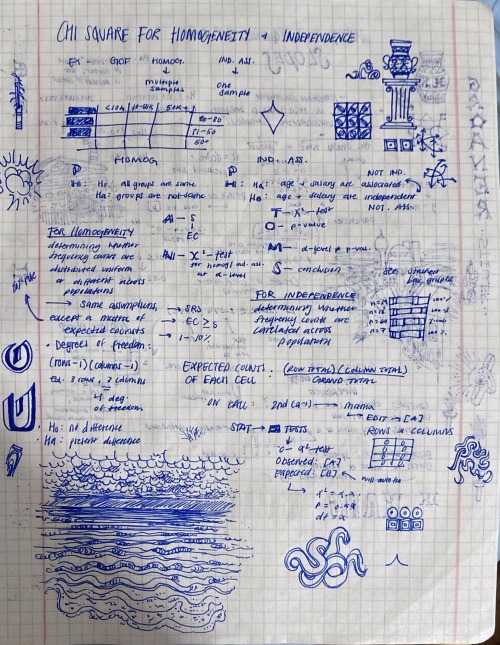 CHI SQUARE FOR HOMOGENEITY & INDEPENDENCE
Ex GOF HOMOG. IND. ASS.
multiple samples
one sample
<10k 50k+
31-50
50+
P HOMOG
P IND. ASS.
H: Ho: all groups are same
Ha: groups are not same
H: Ha: age & salary are associated
Ho: age & salary are independent
NOT IND.
NOT. ASS.
A - S
I
EC
N - X²-test
for homog/ind. ass.
at α-level
T - X²-test
O - p-value
M - α-level & p-val.
S - conclusion
see stacked bar graphs
FOR HOMOGENEITY
determining whether
frequency counts are
distributed uniform
or different across
populations
→ Same assumptions,
except a matrix of
expected counts
→ SRS
→ EC ≥ 5
→ I - 10%
FOR INDEPENDENCE
determining whether
frequency counts are
correlated across
population
100%
0%
• Degrees of freedom:
(rows-1)(columns-1)
ex. 3 rows, 3 columns
4 deg.
of freedom
EXPECTED COUNTS
OF EACH CELL
: (ROW TOTAL)(COLUMN TOTAL)
GRAND TOTAL
ON CALC: 2nd (x⁻¹) → matrix
→ EDIT → [A]
ROWS × COLUMNS
Ho: no difference
Ha: present difference
STAT → TESTS
x²-test
Observed: [A]
Expected: [B]